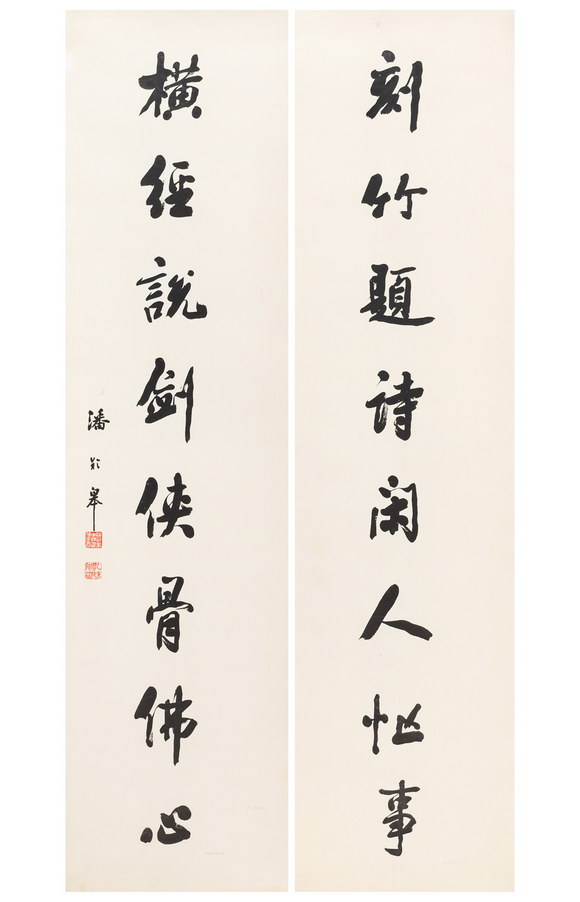 刻竹題詩閑人忙事
橫經說劍俠骨佛心
潘齡皋